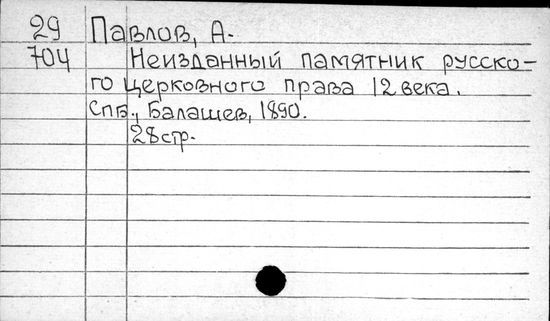 29 Павлов, А.
704 Неизданный памятник русско-
го церковного права 12 века.
Спб., Балашев, 1890.
28стр.